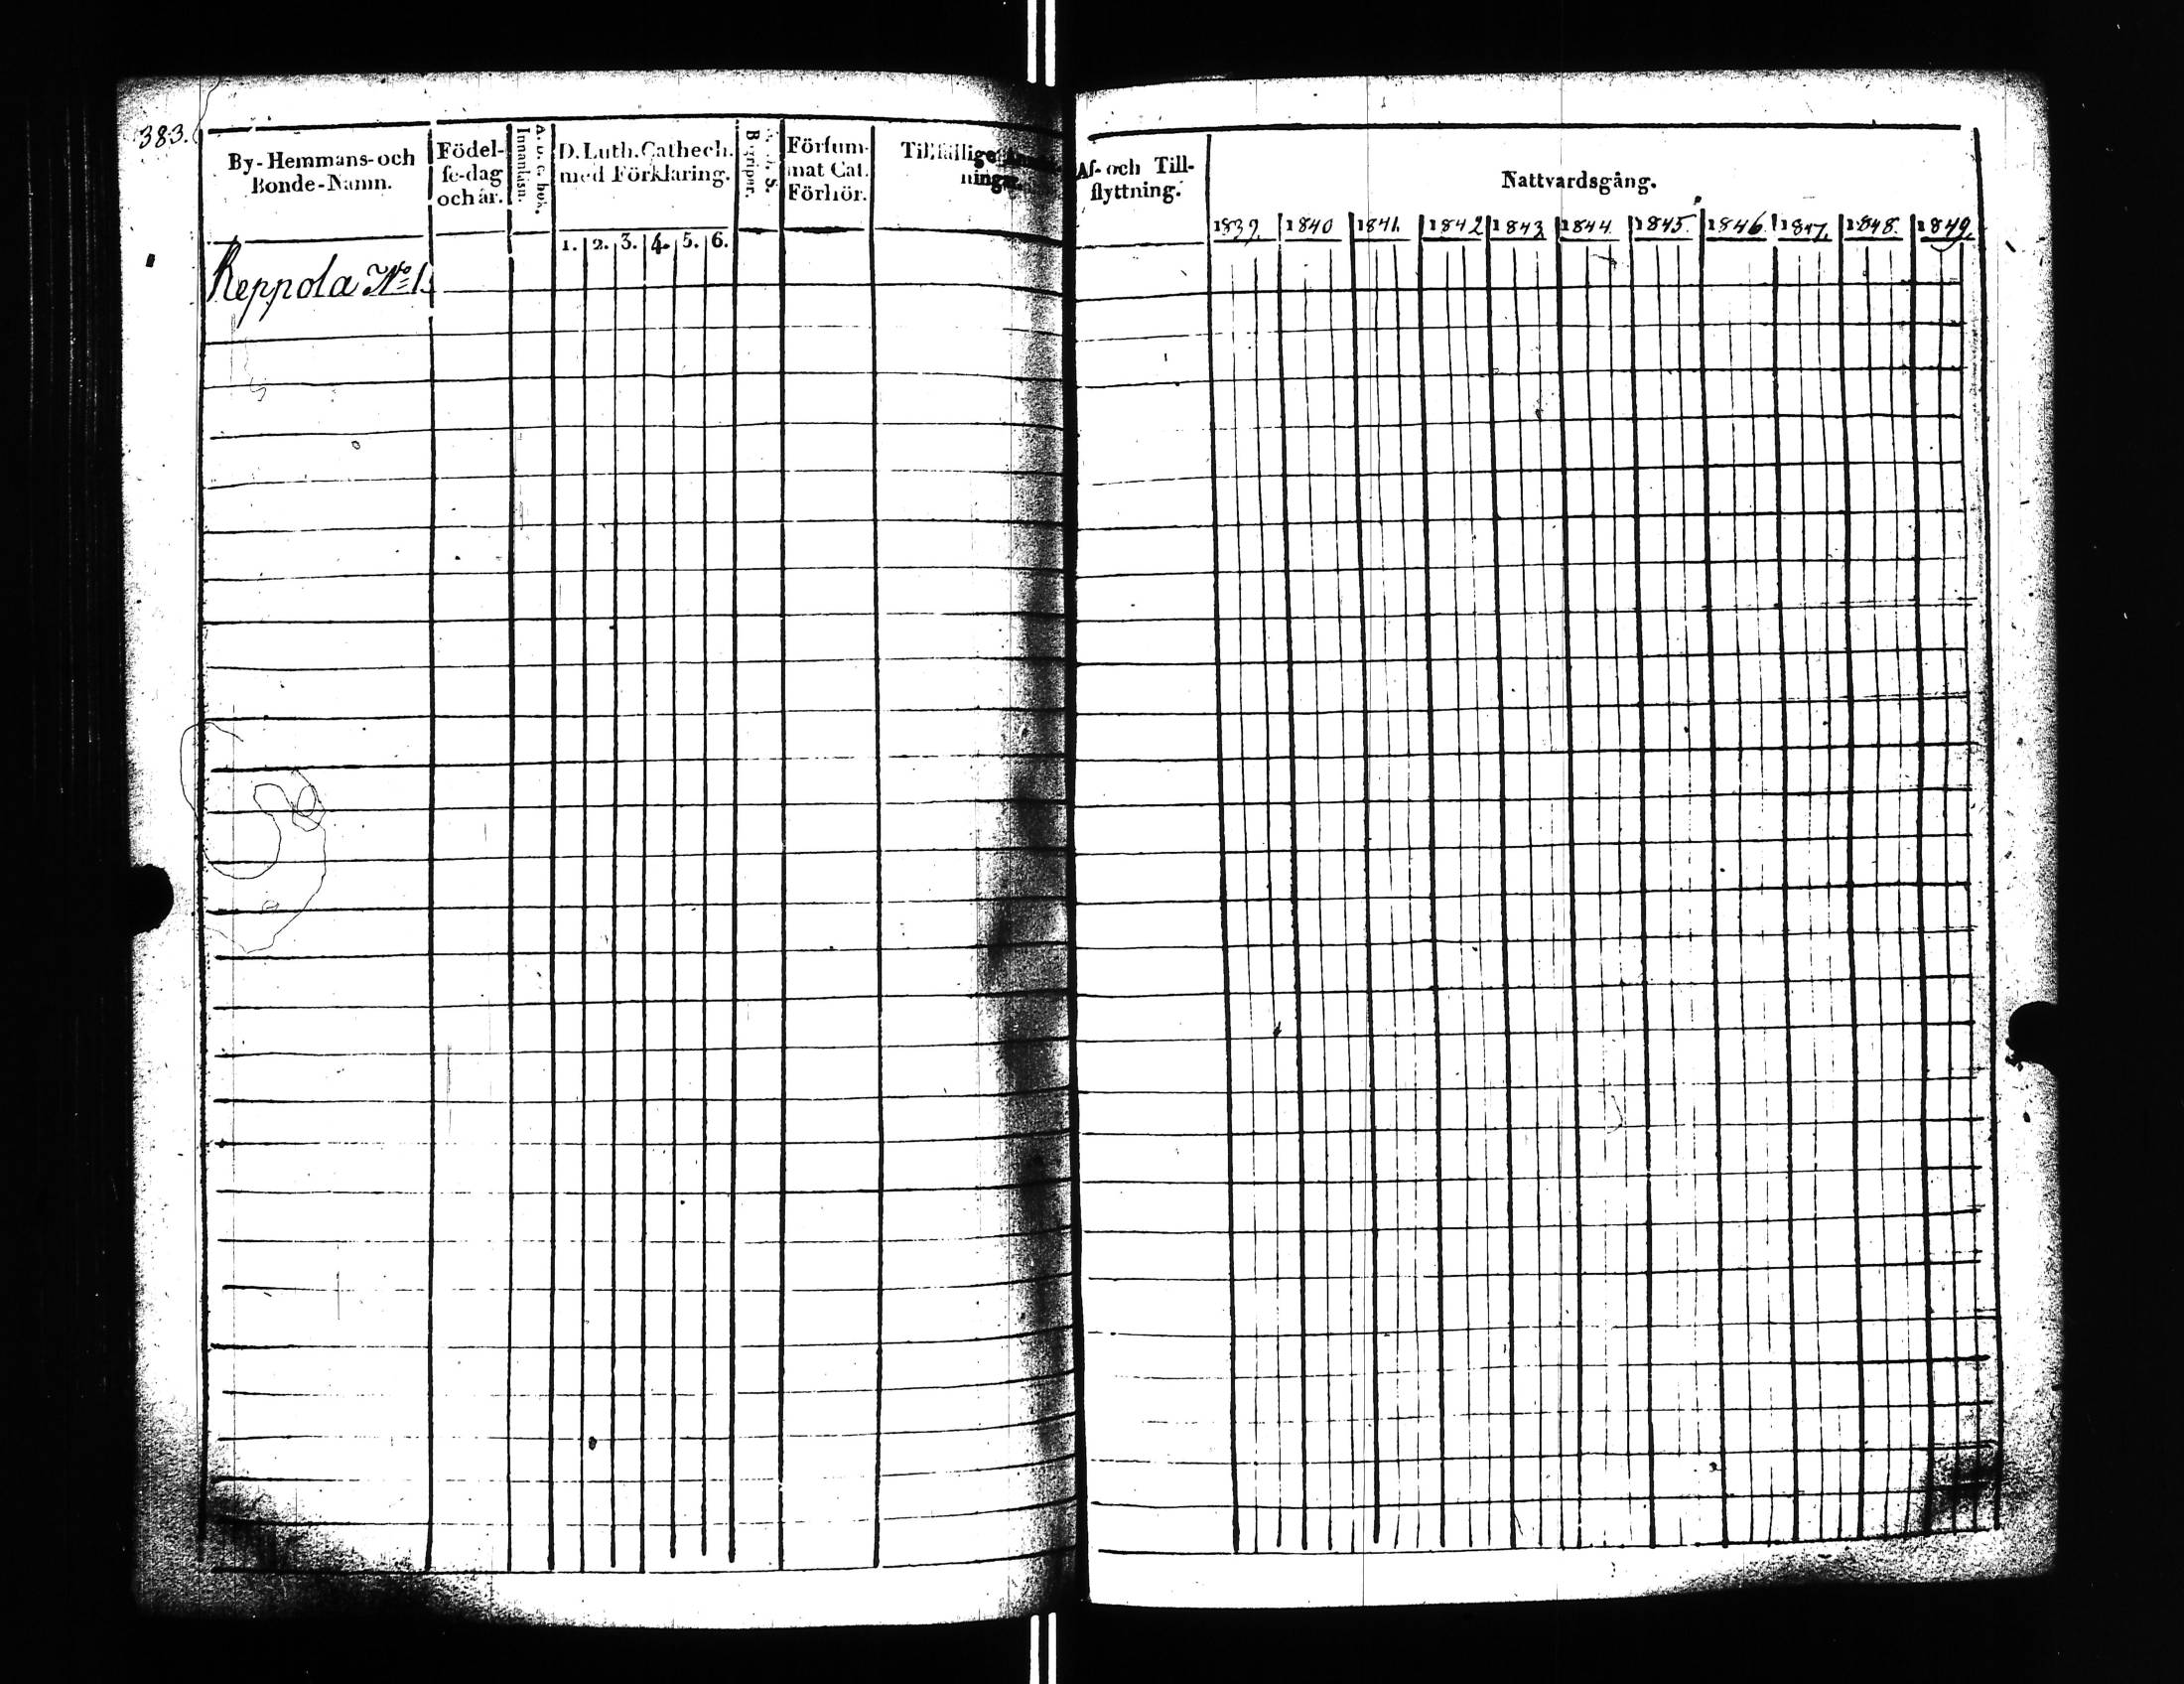 383.
By-Hemmans-och
Bonde-Namn.
Födel-
se-dag
och år.
A. B. C. bok.
Innanläsn.
D. Luth. Cathech.
med Förklaring.
1. 2. 3. 4. 5. 6.
Begriper.
Försum-
mat Cat.
Förhör.
Tillfällige
Af- och Till-
flyttning.
Nattvardsgång.
1839. 1840 1841. 1842 1843 1844 1845. 1846. 1847. 1848. 1849.
Reppola No 1.